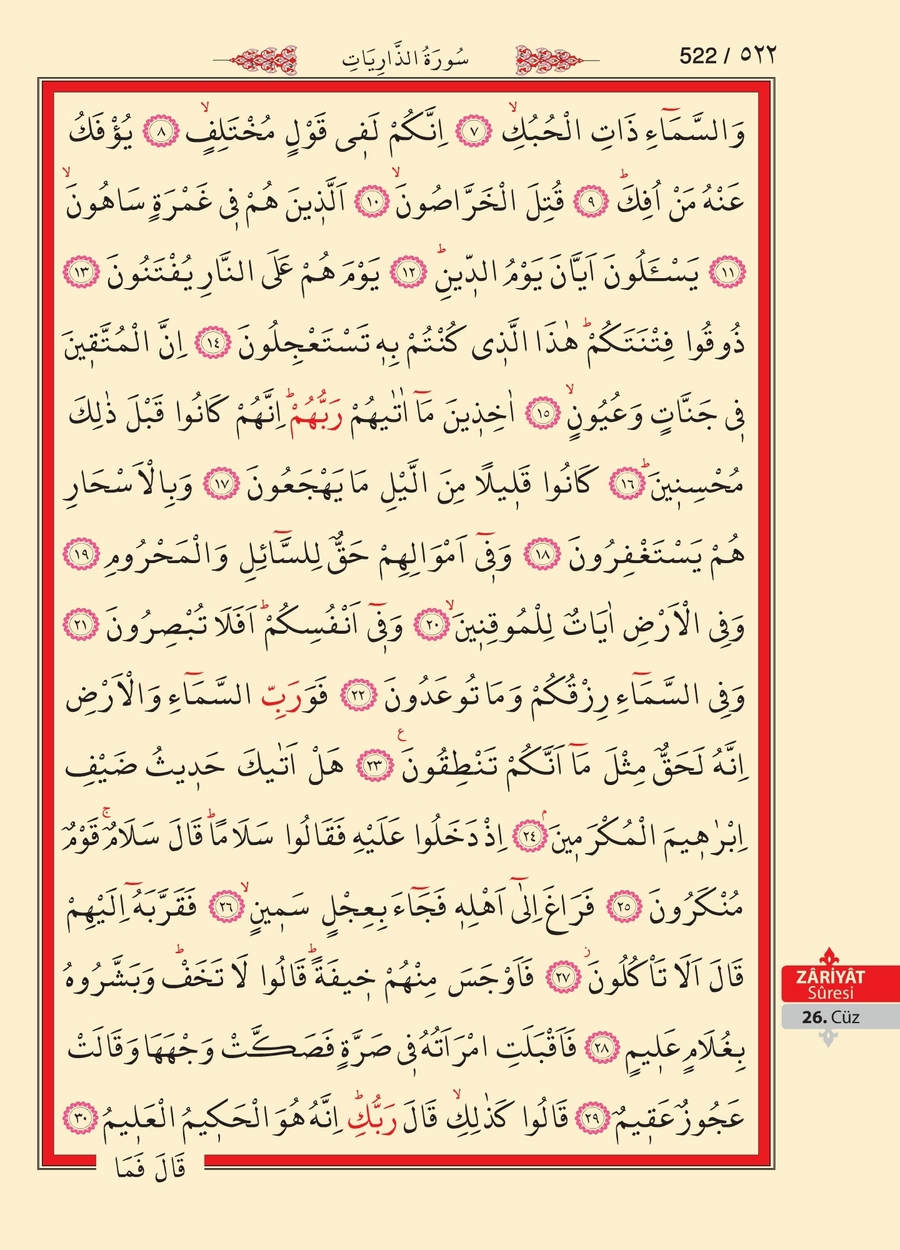 سُورَةُ الذَّارِيَاتِ
522 / ٥٢٢
وَالسَّمَٓاءِ ذَاتِ الْحُبُكِۙ ﴿٧﴾ اِنَّكُمْ لَف۪ى قَوْلٍ مُخْتَلِفٍۙ ﴿٨﴾ يُؤْفَكُ
عَنْهُ مَنْ اُفِكَۜ ﴿٩﴾ قُتِلَ الْخَرَّاصُونَۙ ﴿١٠﴾ اَلَّذ۪ينَ هُمْ ف۪ى غَمْرَةٍ سَاهُونَۙ
﴿١١﴾ يَسْـَٔلُونَ اَيَّانَ يَوْمُ الدّ۪ينِۜ ﴿١٢﴾ يَوْمَ هُمْ عَلَى النَّارِ يُفْتَنُونَ ﴿١٣﴾
ذُوقُوا فِتْنَتَكُمْۜ هٰذَا الَّذ۪ى كُنْتُمْ بِه۪ تَسْتَعْجِلُونَ ﴿١٤﴾ اِنَّ الْمُتَّق۪ينَ
ف۪ى جَنَّاتٍ وَعُيُونٍۙ ﴿١٥﴾ اٰخِذ۪ينَ مَٓا اٰتٰيهُمْ رَبُّهُمْۜ اِنَّهُمْ كَانُوا قَبْلَ ذٰلِكَ
مُحْسِن۪ينَۜ ﴿١٦﴾ كَانُوا قَل۪يلًا مِنَ الَّيْلِ مَا يَهْجَعُونَ ﴿١٧﴾ وَبِالْاَسْحَارِ
هُمْ يَسْتَغْفِرُونَ ﴿١٨﴾ وَف۪ٓى اَمْوَالِهِمْ حَقٌّ لِلسَّٓائِلِ وَالْمَحْرُومِ ﴿١٩﴾
وَفِى الْاَرْضِ اٰيَاتٌ لِلْمُوقِن۪ينَۙ ﴿٢٠﴾ وَف۪ٓى اَنْفُسِكُمْۜ اَفَلَا تُبْصِرُونَ ﴿٢١﴾
وَفِى السَّمَٓاءِ رِزْقُكُمْ وَمَا تُوعَدُونَ ﴿٢٢﴾ فَوَرَبِّ السَّمَٓاءِ وَالْاَرْضِ
اِنَّهُ لَحَقٌّ مِثْلَ مَٓا اَنَّكُمْ تَنْطِقُونَ ع ﴿٢٣﴾ هَلْ اَتٰيكَ حَد۪يثُ ضَيْفِ
اِبْرٰه۪يمَ الْمُكْرَم۪ينَۢ ﴿٢٤﴾ اِذْ دَخَلُوا عَلَيْهِ فَقَالُوا سَلَامًاۜ قَالَ سَلَامٌۚ قَوْمٌ
مُنْكَرُونَ ﴿٢٥﴾ فَرَاغَ اِلٰٓى اَهْلِه۪ فَجَٓاءَ بِعِجْلٍ سَم۪ينٍۙ ﴿٢٦﴾ فَقَرَّبَهُٓ اِلَيْهِمْ
قَالَ اَلَا تَاْكُلُونَۘ ﴿٢٧﴾ فَاَوْجَسَ مِنْهُمْ خ۪يفَةًۜ قَالُوا لَا تَخَفْۜ وَبَشَّرُوهُ
بِغُلَامٍ عَل۪يمٍ ﴿٢٨﴾ فَاَقْبَلَتِ امْرَاَتُهُ ف۪ى صَرَّةٍ فَصَكَّتْ وَجْهَهَا وَقَالَتْ
عَجُوزٌ عَق۪يمٌ ﴿٢٩﴾ قَالُوا كَذٰلِكِۙ قَالَ رَبُّكِۜ اِنَّهُ هُوَ الْحَك۪يمُ الْعَل۪يمُ ﴿٣٠﴾
قَالَ فَمَا
ZÂRİYÂT
Sûresi
26. Cüz